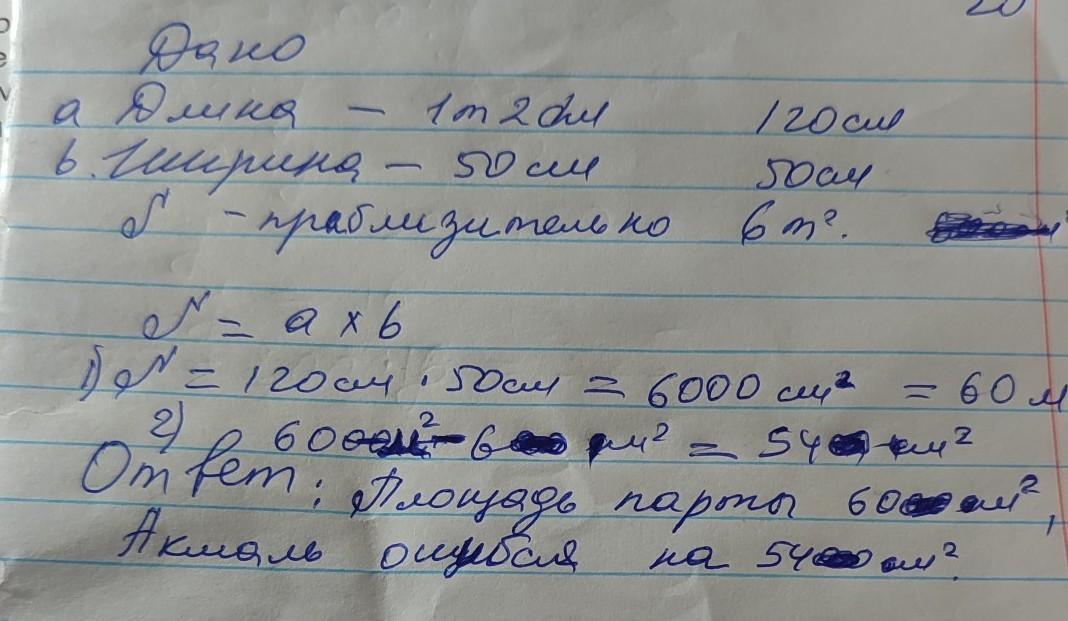 20
Дано
a Длина – 1m 2дм 120см
b. Ширина – 50см 50см
S – праблизительно 6m².
S = a × b
1) S = 120см · 50см = 6000 см² = 60 м
2) 60 - 6 м² = 54 м²
Ответ: Площадь парты 60 м²,
Акмаль ошибся на 54 м².